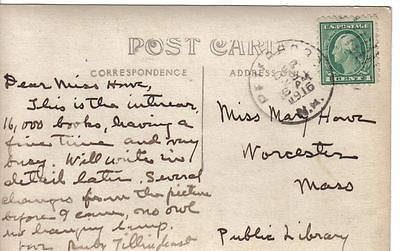 POST CARD
CORRESPONDENCE
ADDRESS ON
1916
N.M.
CENTS
Dear Miss Howe,
This is the interior,
16,000 books, having a
fine time and very
busy. Will write in
detail later. Several
changes from the picture
before I came, no owl
no hanging lamp.
Ruby Tillinghast
Miss Mary Howe
Worcester
Mass
Public Library